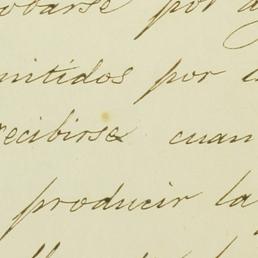 obarse por
mitidos por
recibirse cuan
producir la